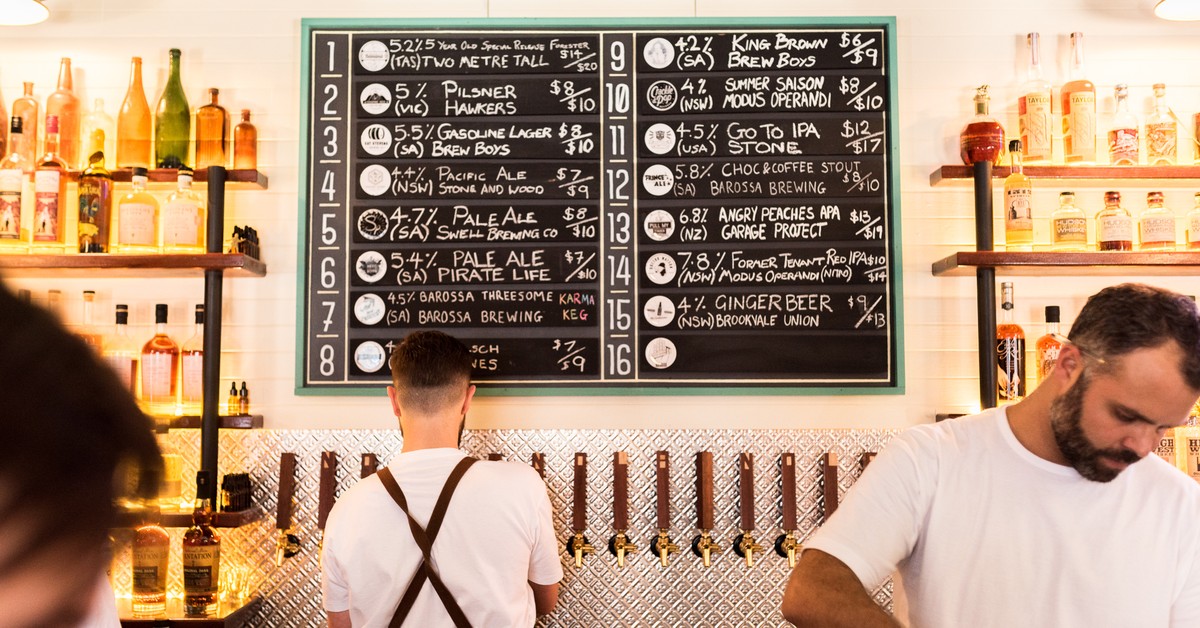 1
5.2% 5 Year Old Special Release Forester
(TAS) Two Metre Tall $14/$20
2
5% Pilsner $8/$10
(VIC) Hawkers
3
5.5% Gasoline Lager $8/$10
(SA) Brew Boys
4
4.4% Pacific Ale $7/$9
(NSW) Stone and Wood
5
4.7% Pale Ale $8/$10
(SA) Swell Brewing Co
6
5.4% Pale Ale $7/$10
(SA) Pirate Life
7
4.5% Barossa Threesome KARMA
(SA) Barossa Brewing KEG
8
$7/$9
9
4.2% King Brown $6/$9
(SA) Brew Boys
10
4% Summer Saison $8/$10
(NSW) Modus Operandi
11
4.5% Go To IPA $12/$17
(USA) Stone
12
5.8% Choc & Coffee Stout
(SA) Barossa Brewing $8/$10
13
6.8% Angry Peaches APA $13/$19
(NZ) Garage Project
14
7.8% Former Tenant Red IPA $10
(NSW) Modus Operandi (Nitro) $14
15
4% Ginger Beer $9/$13
(NSW) Brookvale Union
16